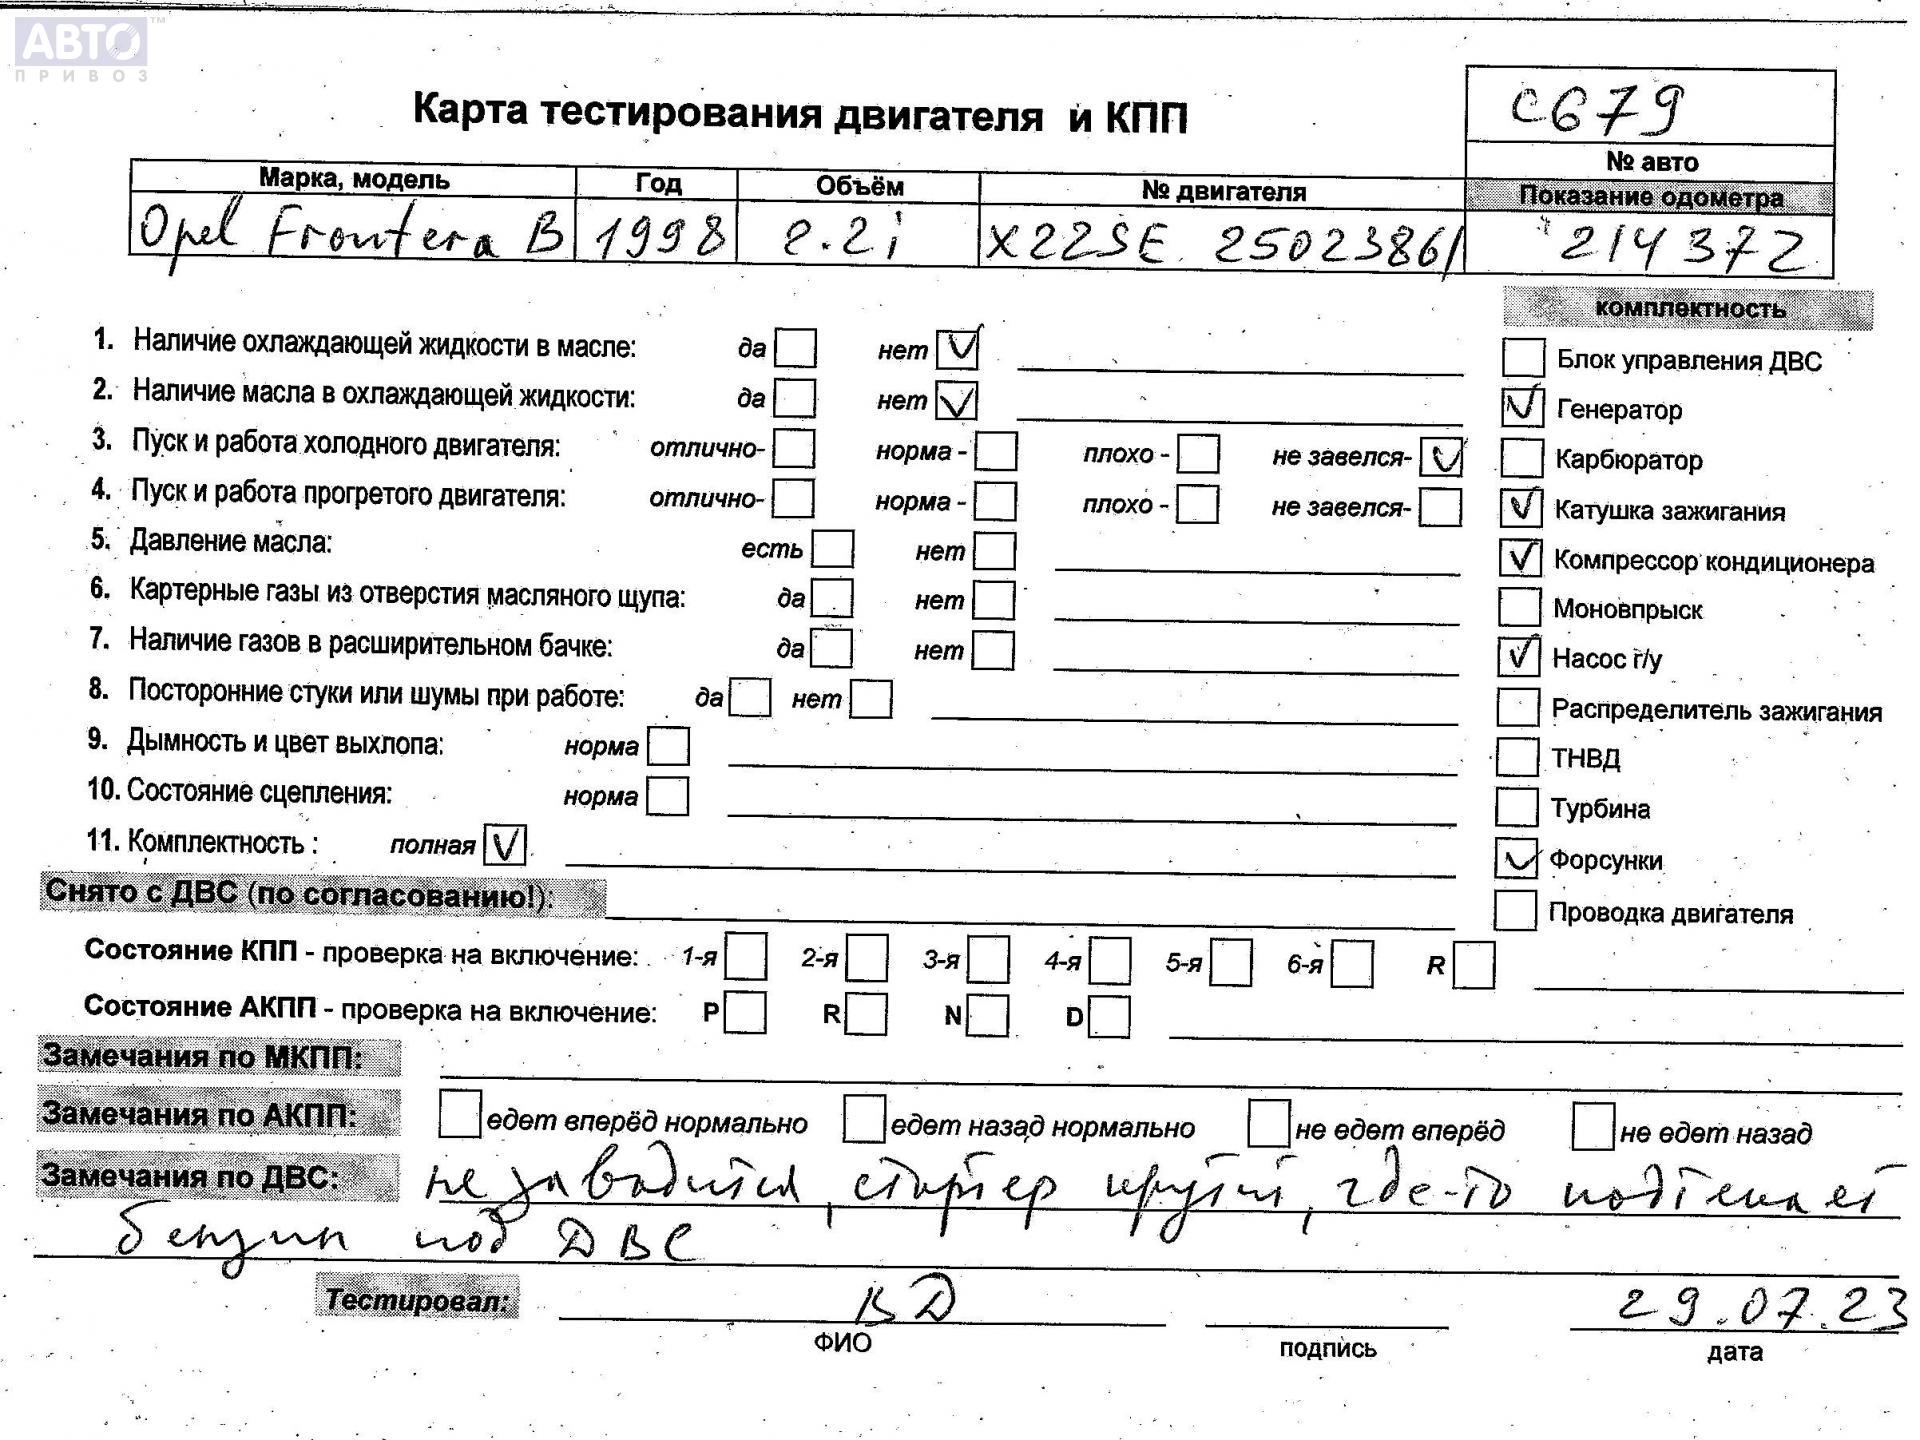 АВТО™
ПРИВОЗ
Карта тестирования двигателя и КПП
С679
№ авто
Марка, модель Год Объём № двигателя Показание одометра
Opel Frontera B 1998 2.2i X22SE 25023861 214372
комплектность
1. Наличие охлаждающей жидкости в масле: да нет ✓
2. Наличие масла в охлаждающей жидкости: да нет ✓
3. Пуск и работа холодного двигателя: отлично- норма - плохо - не завелся- ✓
4. Пуск и работа прогретого двигателя: отлично- норма - плохо - не завелся-
5. Давление масла: есть нет
6. Картерные газы из отверстия масляного щупа: да нет
7. Наличие газов в расширительном бачке: да нет
8. Посторонние стуки или шумы при работе: да нет
9. Дымность и цвет выхлопа: норма
10. Состояние сцепления: норма
11. Комплектность : полная ✓
Блок управления ДВС
✓ Генератор
Карбюратор
✓ Катушка зажигания
✓ Компрессор кондиционера
Моновпрыск
✓ Насос г/у
Распределитель зажигания
ТНВД
Турбина
✓ Форсунки
Проводка двигателя
Снято с ДВС (по согласованию!):
Состояние КПП - проверка на включение: 1-я 2-я 3-я 4-я 5-я 6-я R
Состояние АКПП - проверка на включение: P R N D
Замечания по МКПП:
Замечания по АКПП: едет вперёд нормально едет назад нормально не едет вперёд не едет назад
Замечания по ДВС: не заводится, стартер крутит, где-то подтекает
бензин под ДВС
Тестировал: ВД 29.07.23
ФИО подпись дата